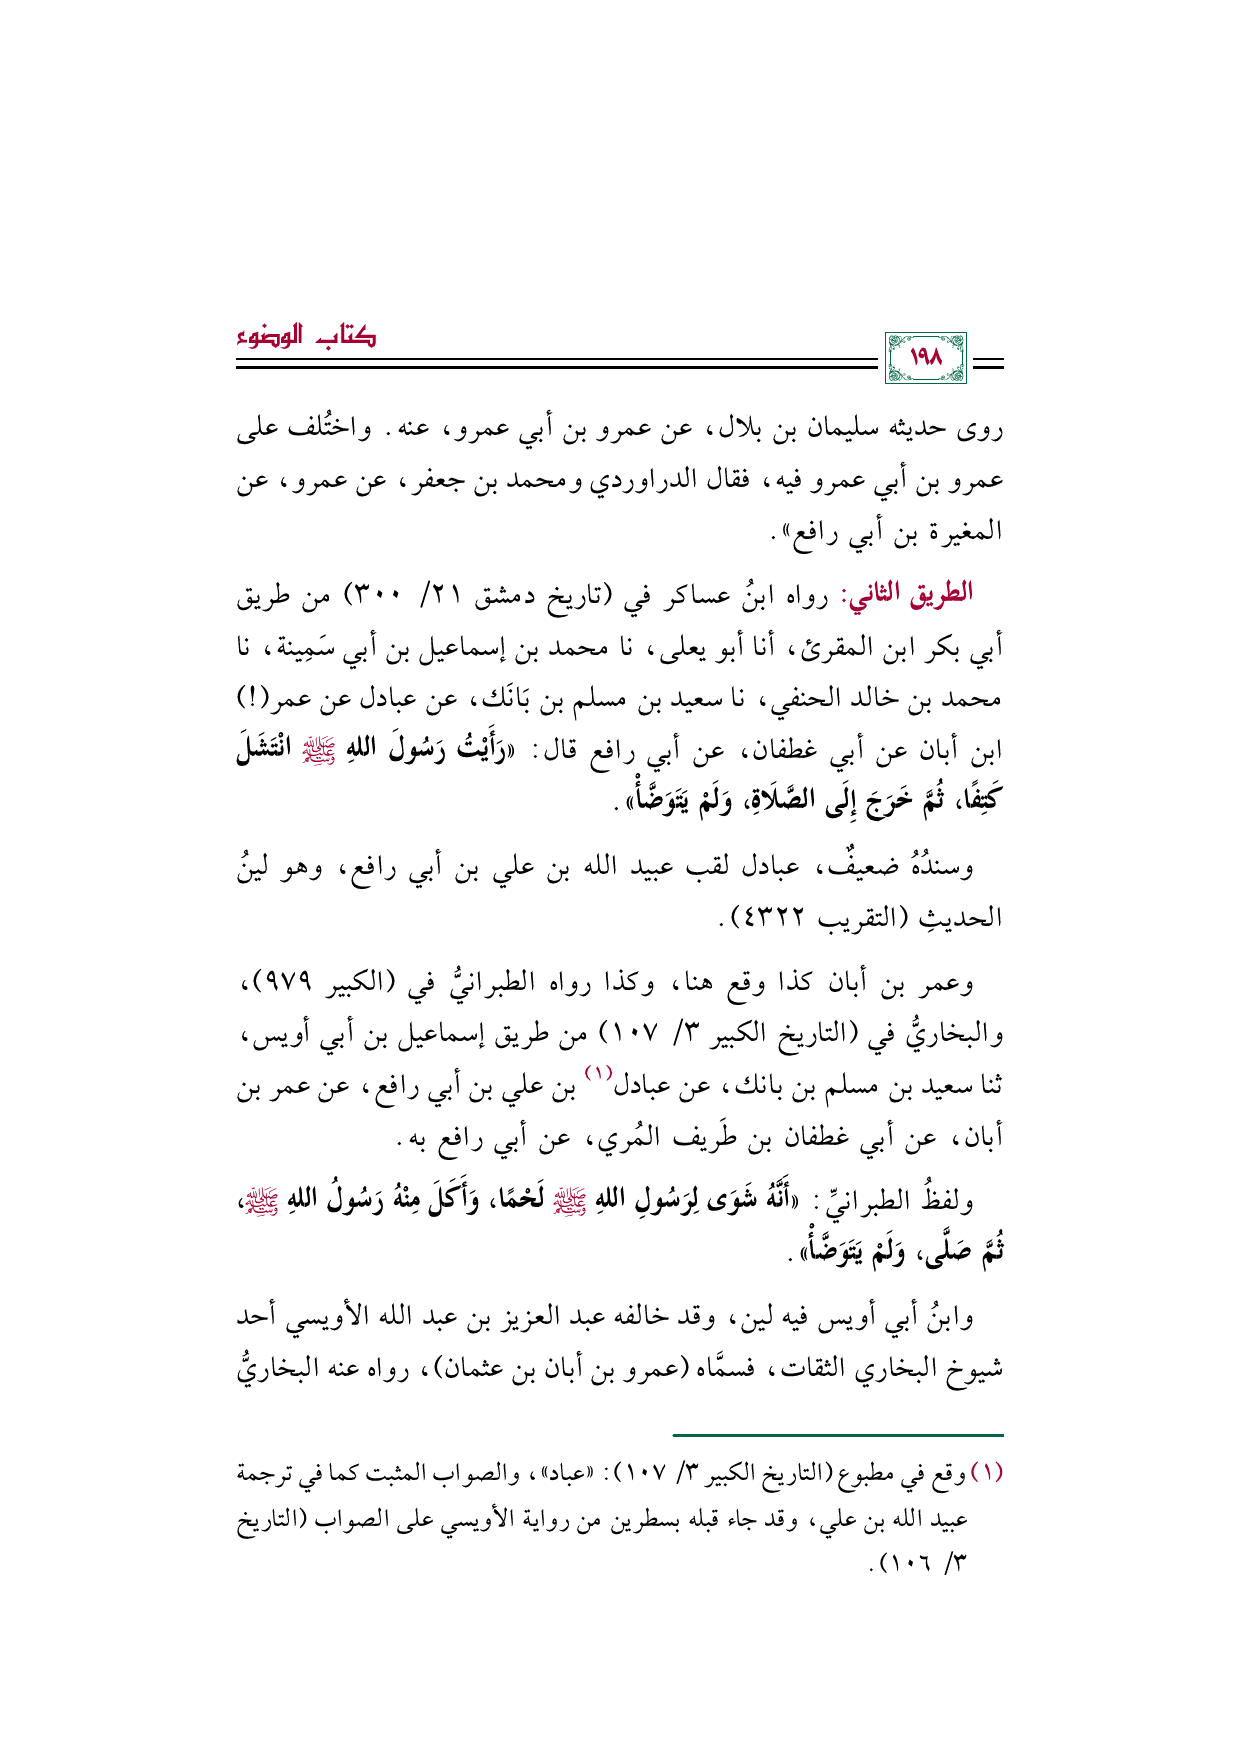 كتاب الوضوء
١٩٨
روى حديثه سليمان بن بلال، عن عمرو بن أبي عمرو، عنه. واختُلف على
عمرو بن أبي عمرو فيه، فقال الدراوردي ومحمد بن جعفر، عن عمرو، عن
المغيرة بن أبي رافع».
الطريق الثاني: رواه ابنُ عساكر في (تاريخ دمشق ٢١/ ٣٠٠) من طريق
أبي بكر ابن المقرئ، أنا أبو يعلى، نا محمد بن إسماعيل بن أبي سَمِينة، نا
محمد بن خالد الحنفي، نا سعيد بن مسلم بن بَانَك، عن عبادل عن عمر(!)
ابن أبان عن أبي غطفان، عن أبي رافع قال: «رَأَيْتُ رَسُولَ اللهِ ﷺ انْتَشَلَ
كَتِفًا، ثُمَّ خَرَجَ إِلَى الصَّلَاةِ، وَلَمْ يَتَوَضَّأْ».
وسندُهُ ضعيفٌ، عبادل لقب عبيد الله بن علي بن أبي رافع، وهو لينُ
الحديثِ (التقريب ٤٣٢٢).
وعمر بن أبان كذا وقع هنا، وكذا رواه الطبرانيُّ في (الكبير ٩٧٩)،
والبخاريُّ في (التاريخ الكبير ٣/ ١٠٧) من طريق إسماعيل بن أبي أويس،
ثنا سعيد بن مسلم بن بانك، عن عبادل(١) بن علي بن أبي رافع، عن عمر بن
أبان، عن أبي غطفان بن طَريف المُري، عن أبي رافع به.
ولفظُ الطبرانيِّ: «أَنَّهُ شَوَى لِرَسُولِ اللهِ ﷺ لَحْمًا، وَأَكَلَ مِنْهُ رَسُولُ اللهِ ﷺ،
ثُمَّ صَلَّى، وَلَمْ يَتَوَضَّأْ».
وابنُ أبي أويس فيه لين، وقد خالفه عبد العزيز بن عبد الله الأويسي أحد
شيوخ البخاري الثقات، فسمَّاه (عمرو بن أبان بن عثمان)، رواه عنه البخاريُّ
(١) وقع في مطبوع (التاريخ الكبير ٣/ ١٠٧): «عباد»، والصواب المثبت كما في ترجمة
عبيد الله بن علي، وقد جاء قبله بسطرين من رواية الأويسي على الصواب (التاريخ
٣/ ١٠٦).